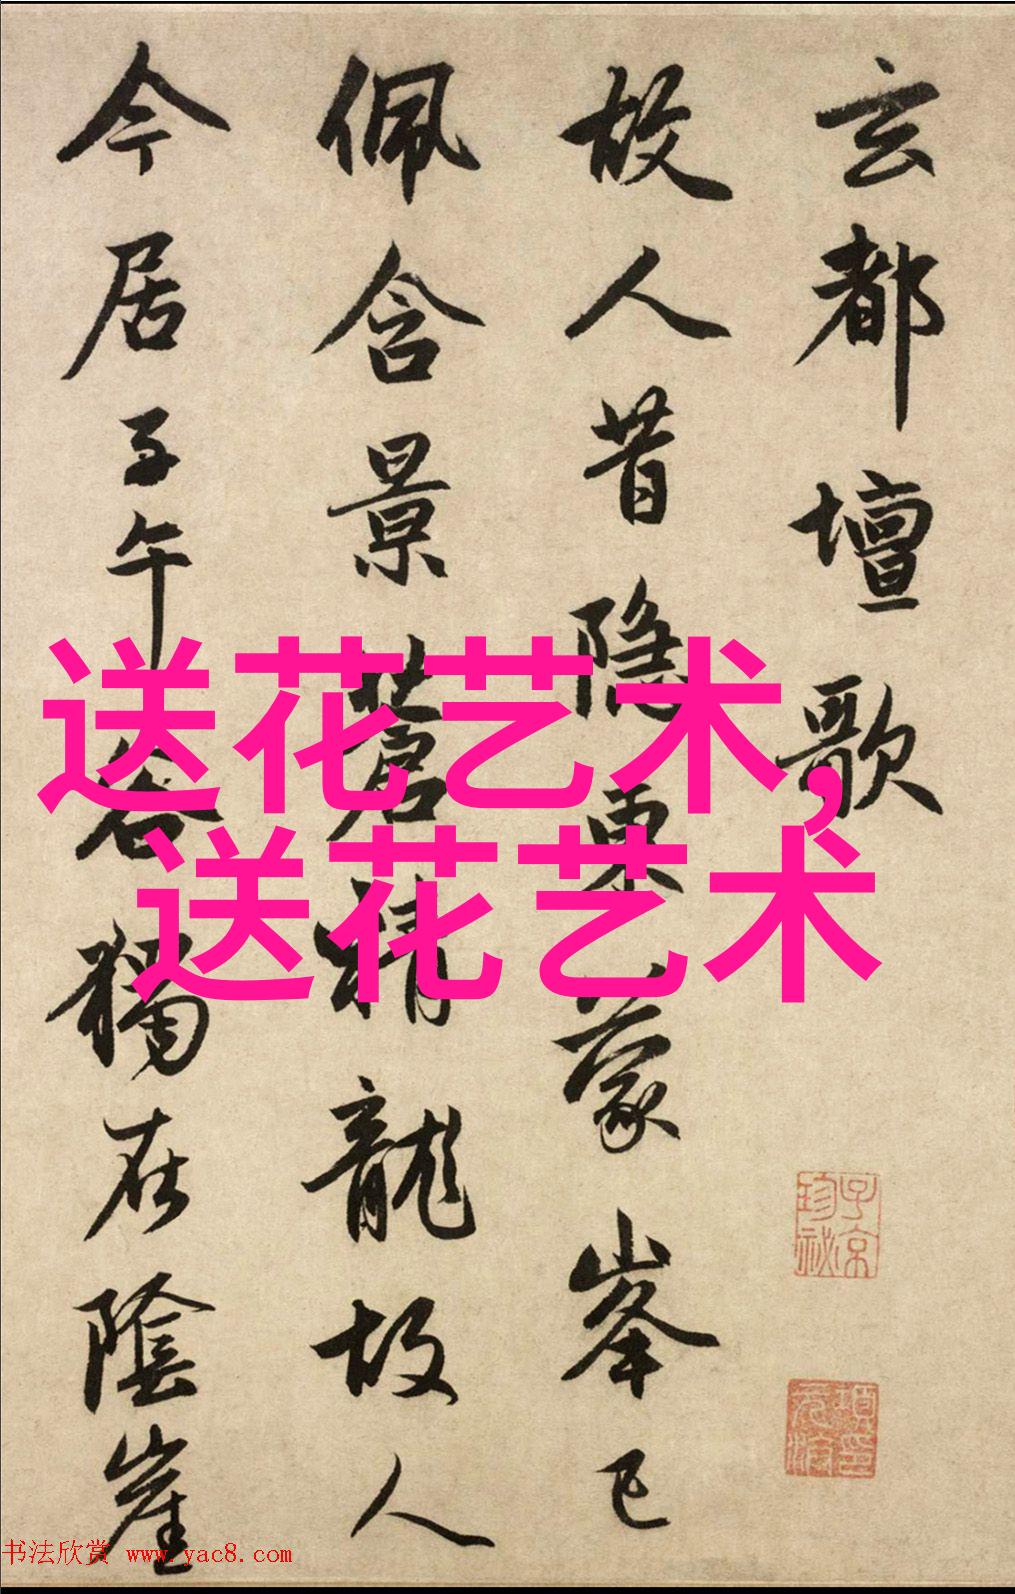 玄都壇歌
故人昔隱東蒙峯已
佩含景蒼精龍故人
今居子午谷獨在陰崖
送花艺术，
送花艺术
子京
珍祕
項元汴印
书法欣赏 www.yac8.com